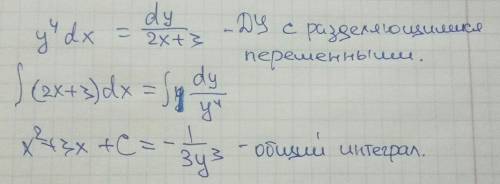 y⁴dx = dy/(2x+3) - ДУ с разделяющимися
переменными.
∫(2x+3)dx = ∫dy/y⁴
x²+3x + C = -1/(3y³) - общий интеграл.